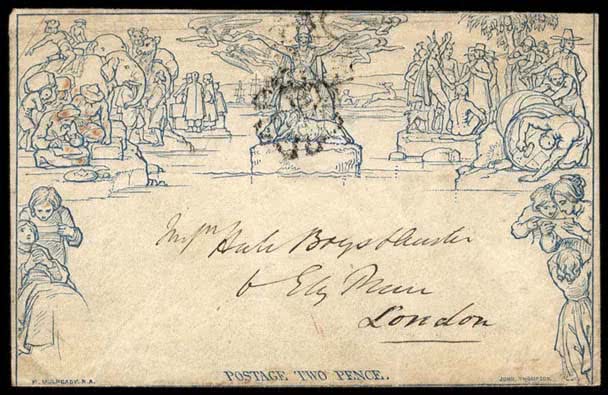 Hale Boys & Austen
6 Ely Place
London
POSTAGE TWO PENCE.
W. MULREADY. R.A.
JOHN THOMPSON.